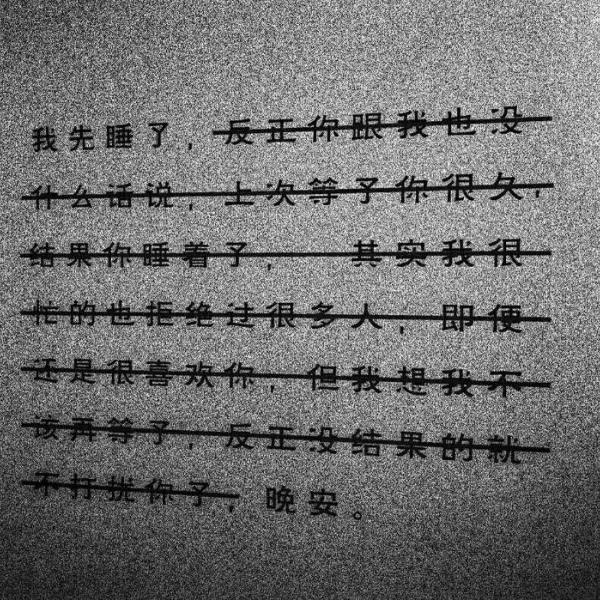 我先睡了，反正你跟我也没
什么话说，上次等了你很久，
结果你睡着了，其实我很
忙的也拒绝过很多人，即便
还是很喜欢你，但我想我不
该再等了，反正没结果的就
不打扰你了，晚安。